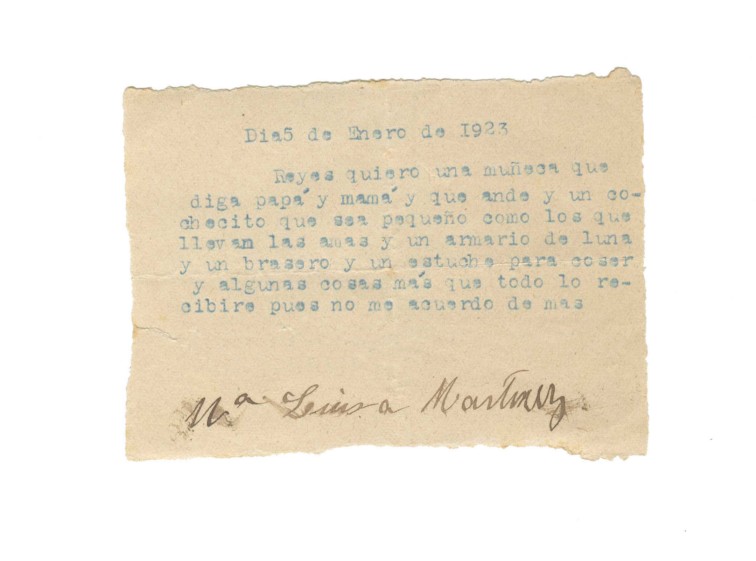 Dia5 de Enero de I923
Reyes quiero una muñeca que
diga papá y mamá y que ande y un co-
checito que sea pequeño como los que
llevan las amas y un armario de luna
y un brasero y un estuche para coser
y algunas cosas más que todo lo re-
cibire pues no me acuerdo de mas
Mª Luisa Martinez